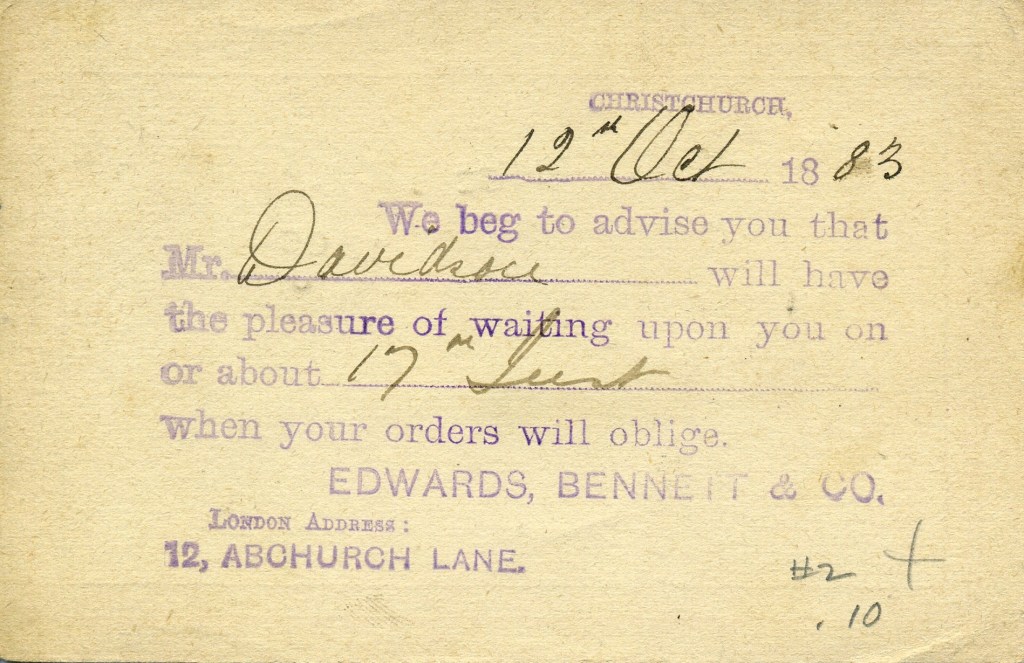 CHRISTCHURCH,
12th Oct 1883
We beg to advise you that
Mr. Davidson will have
the pleasure of waiting upon you on
or about 17th Inst
when your orders will oblige.
EDWARDS, BENNETT & CO.
LONDON ADDRESS:
12, ABCHURCH LANE.
#2 +
.10